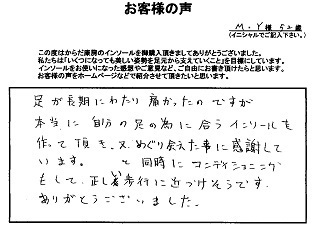 お客様の声
M.Y様 52歳
(イニシャルでご記入下さい。)
この度はからだ康房のインソールを御購入頂きましてありがとうございました。
私たちは「いくつになっても美しい姿勢を足元から支えていくこと」を目標にしています。
インソールをお使いになった感想やご意見など、ご自由にお書き頂けたらと思います。
お客様の声をホームページなどで紹介させて頂きたいと思います。
足が長期にわたり痛かったのですが
本当に自分の足の為に合うインソールを
作って頂き、又、めぐり会えた事に感謝して
います。 と同時にコンディショニング
もして、正しい歩行に近づけそうです。
ありがとうございました。